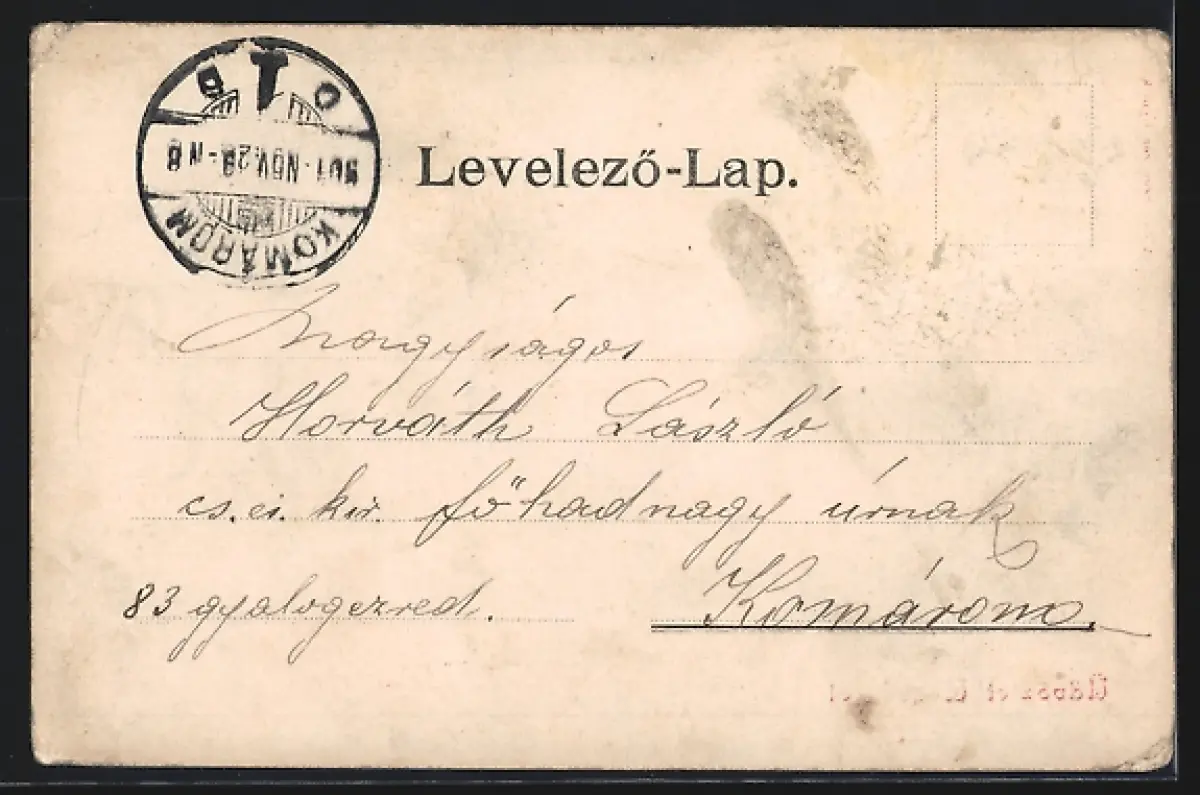 901 NOV. 28 - N 8
KOMÁROM
Levelező-Lap.
Nagyságos
Horváth László
cs. és. kir. főhadnagy úrnak
83 gyalogezred. Komárom.